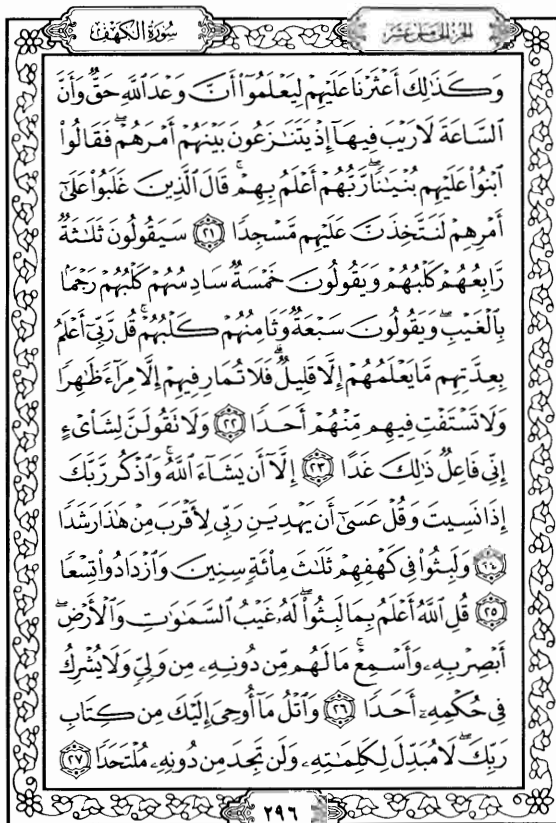 سُورَةُ الكَهْفِ
الجُزءُ الخَامِسُ عَشَرَ
وَكَذَٰلِكَ أَعْثَرْنَا عَلَيْهِمْ لِيَعْلَمُوٓا۟ أَنَّ وَعْدَ ٱللَّهِ حَقٌّ وَأَنَّ
ٱلسَّاعَةَ لَا رَيْبَ فِيهَآ إِذْ يَتَنَٰزَعُونَ بَيْنَهُمْ أَمْرَهُمْ ۖ فَقَالُوا۟
ٱبْنُوا۟ عَلَيْهِم بُنْيَٰنًا ۖ رَّبُّهُمْ أَعْلَمُ بِهِمْ ۚ قَالَ ٱلَّذِينَ غَلَبُوا۟ عَلَىٰٓ
أَمْرِهِمْ لَنَتَّخِذَنَّ عَلَيْهِم مَّسْجِدًا ٢١ سَيَقُولُونَ ثَلَٰثَةٌ
رَّابِعُهُمْ كَلْبُهُمْ وَيَقُولُونَ خَمْسَةٌ سَادِسُهُمْ كَلْبُهُمْ رَجْمًۢا
بِٱلْغَيْبِ ۖ وَيَقُولُونَ سَبْعَةٌ وَثَامِنُهُمْ كَلْبُهُمْ ۚ قُل رَّبِّىٓ أَعْلَمُ
بِعِدَّتِهِم مَّا يَعْلَمُهُمْ إِلَّا قَلِيلٌ ۗ فَلَا تُمَارِ فِيهِمْ إِلَّا مِرَآءً ظَٰهِرًا
وَلَا تَسْتَفْتِ فِيهِم مِّنْهُمْ أَحَدًا ٢٢ وَلَا تَقُولَنَّ لِشَا۟ىْءٍ
إِنِّى فَاعِلٌ ذَٰلِكَ غَدًا ٢٣ إِلَّآ أَن يَشَآءَ ٱللَّهُ ۚ وَٱذْكُر رَّبَّكَ
إِذَا نَسِيتَ وَقُلْ عَسَىٰٓ أَن يَهْدِيَنِ رَبِّى لِأَقْرَبَ مِنْ هَٰذَا رَشَدًا
٢٤ وَلَبِثُوا۟ فِى كَهْفِهِمْ ثَلَٰثَ مِا۟ئَةٍ سِنِينَ وَٱزْدَادُوا۟ تِسْعًا
٢٥ قُلِ ٱللَّهُ أَعْلَمُ بِمَا لَبِثُوا۟ ۖ لَهُۥ غَيْبُ ٱلسَّمَٰوَٰتِ وَٱلْأَرْضِ ۖ
أَبْصِرْ بِهِۦ وَأَسْمِعْ ۚ مَا لَهُم مِّن دُونِهِۦ مِن وَلِىٍّ وَلَا يُشْرِكُ
فِى حُكْمِهِۦٓ أَحَدًا ٢٦ وَٱتْلُ مَآ أُوحِىَ إِلَيْكَ مِن كِتَابِ
رَبِّكَ ۖ لَا مُبَدِّلَ لِكَلِمَٰتِهِۦ وَلَن تَجِدَ مِن دُونِهِۦ مُلْتَحَدًا ٢٧
٢٩٦